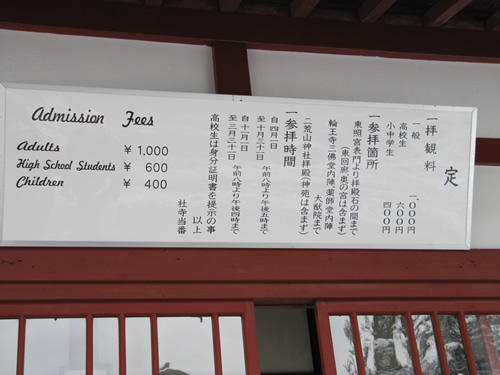 Admission Fees
Adults ¥ 1,000
High School Students ¥ 600
Children ¥ 400
定
一 拝観料
一般 一、〇〇〇円
高校生 六〇〇円
小中学生 四〇〇円
一 参拝箇所
東照宮表門より拝殿石の間まで
(東回廊奥の宮は含まず)
輪王寺三佛堂内陣薬師堂内陣
大猷院まで
二荒山神社拝殿(神苑は含まず)
一 参拝時間
自四月一日
至十月三十一日 午前八時より午後五時まで
自十一月一日
至三月三十一日 午前八時より午後四時まで
高校生は身分証明書を提示の事
以上
社寺当番